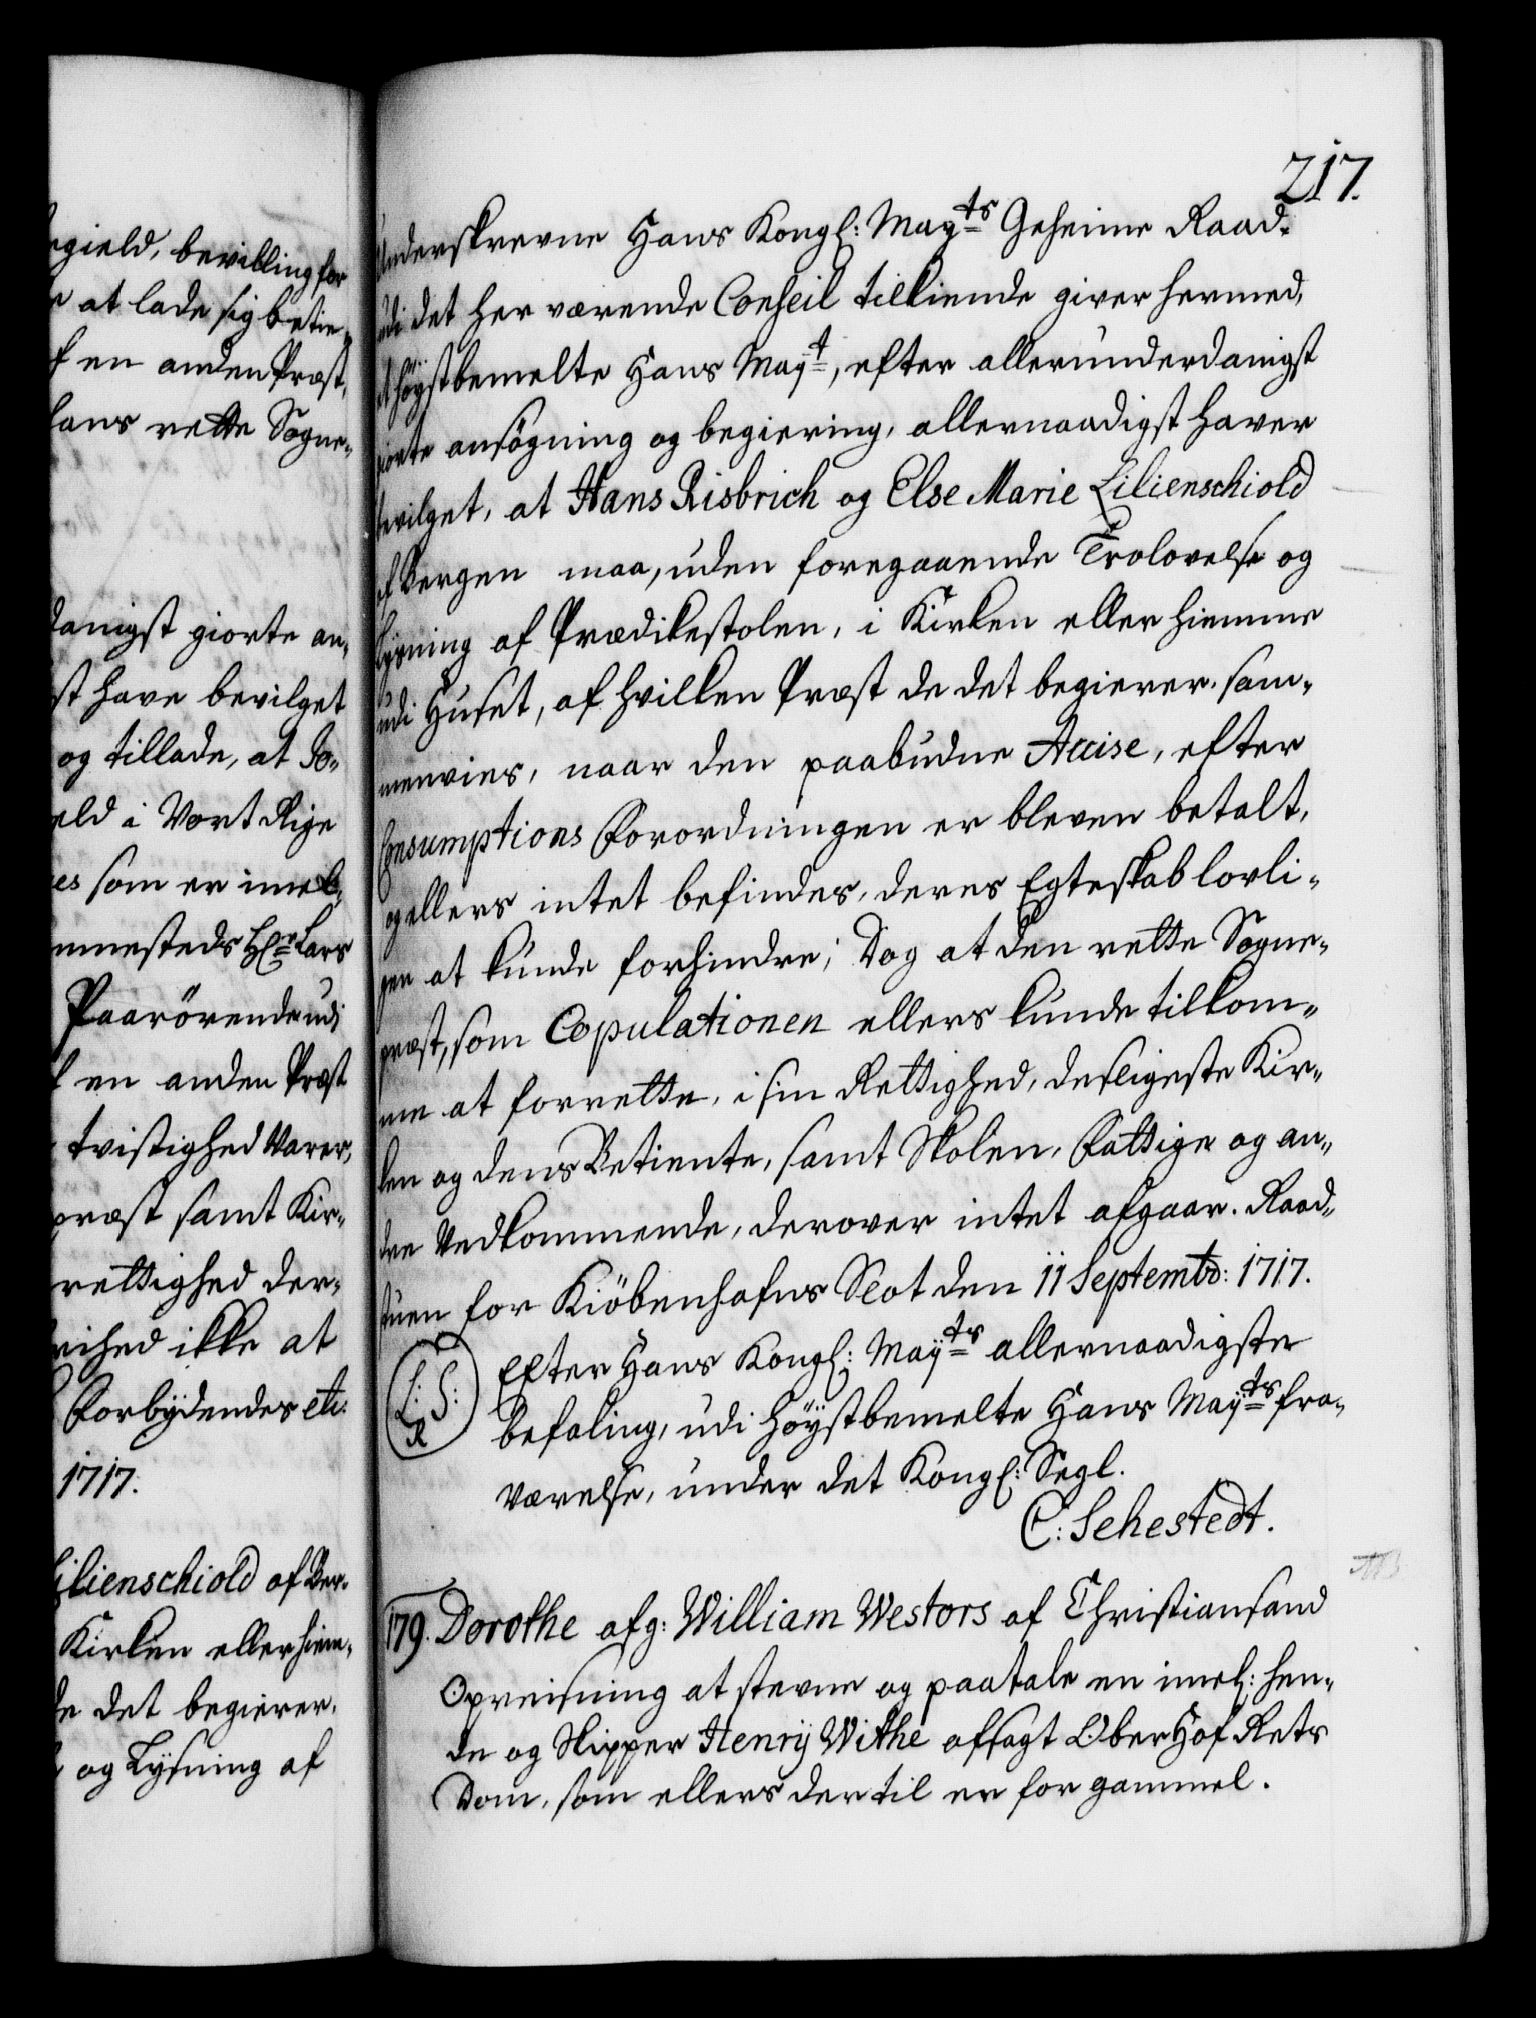 egield, bevilling for
e at lade sig betie-
f en anden Præst,
hans rette Sogne-
danigst giorte an-
st have bevilget
og tillade, at Jo-
eld i Vort Rige
es som er imel-
mmesteds Hr Lars
Paarørende udi
f en anden Præst
tvistighed Varer,
præst samt Kir-
rettighed der-
rihed ikke at
Forbydendes etc:
1717.
Lilienschiold af Ber-
Kirken eller hiem-
de det begierer.
og Lysning af
217.
Underskrevne Hans Kongl: Mayts Geheime Raad.
udi det her værende Conseil tilkiende giver hermed,
at høystbemelte Hans Mayt, efter allerunderdanigst
giorte ansøgning og begiering, allernaadigst haver
bevilget, at Hans Risbrich og Else Marie Lilienschiold
af Bergen maa, uden foregaaende Trolovelse og
Lysning af Prædikestolen, i Kirken eller hiemme
udi Huset, af hvilken Præst de det begierer, sam-
menvies, naar den paabudne Accise, efter
Consumptions Forordningen er bleven betalt,
og ellers intet befindes, deres Egteskab lovli-
gen at kunde forhindre; Dog at den rette Sogne-
præst, som Copulationen ellers kunde tilkom-
me at forrette, i sin Rettighed, desligeste Kir-
ken og dens Betiente, samt Skolen, Fattige og an-
dre Vedkommende, derover intet afgaar. Raad-
stuen for Kiöbenhafns Slot den 11 Septembr: 1717.
L: S:
R
Efter Hans Kongl: Mayts allernaadigste
befaling, udi høystbemelte Hans Mayts fra-
værelse, under det Kongl: Segl.
C: Sehestedt.
179. Dorothe afg: William Westors af Christiansand
Opreisning at stevne og paatale en imel: hen-
de og Skipper Henrÿ Withe afsagt Ober Hof Rets
Dom, som ellers dertil er for gammel.